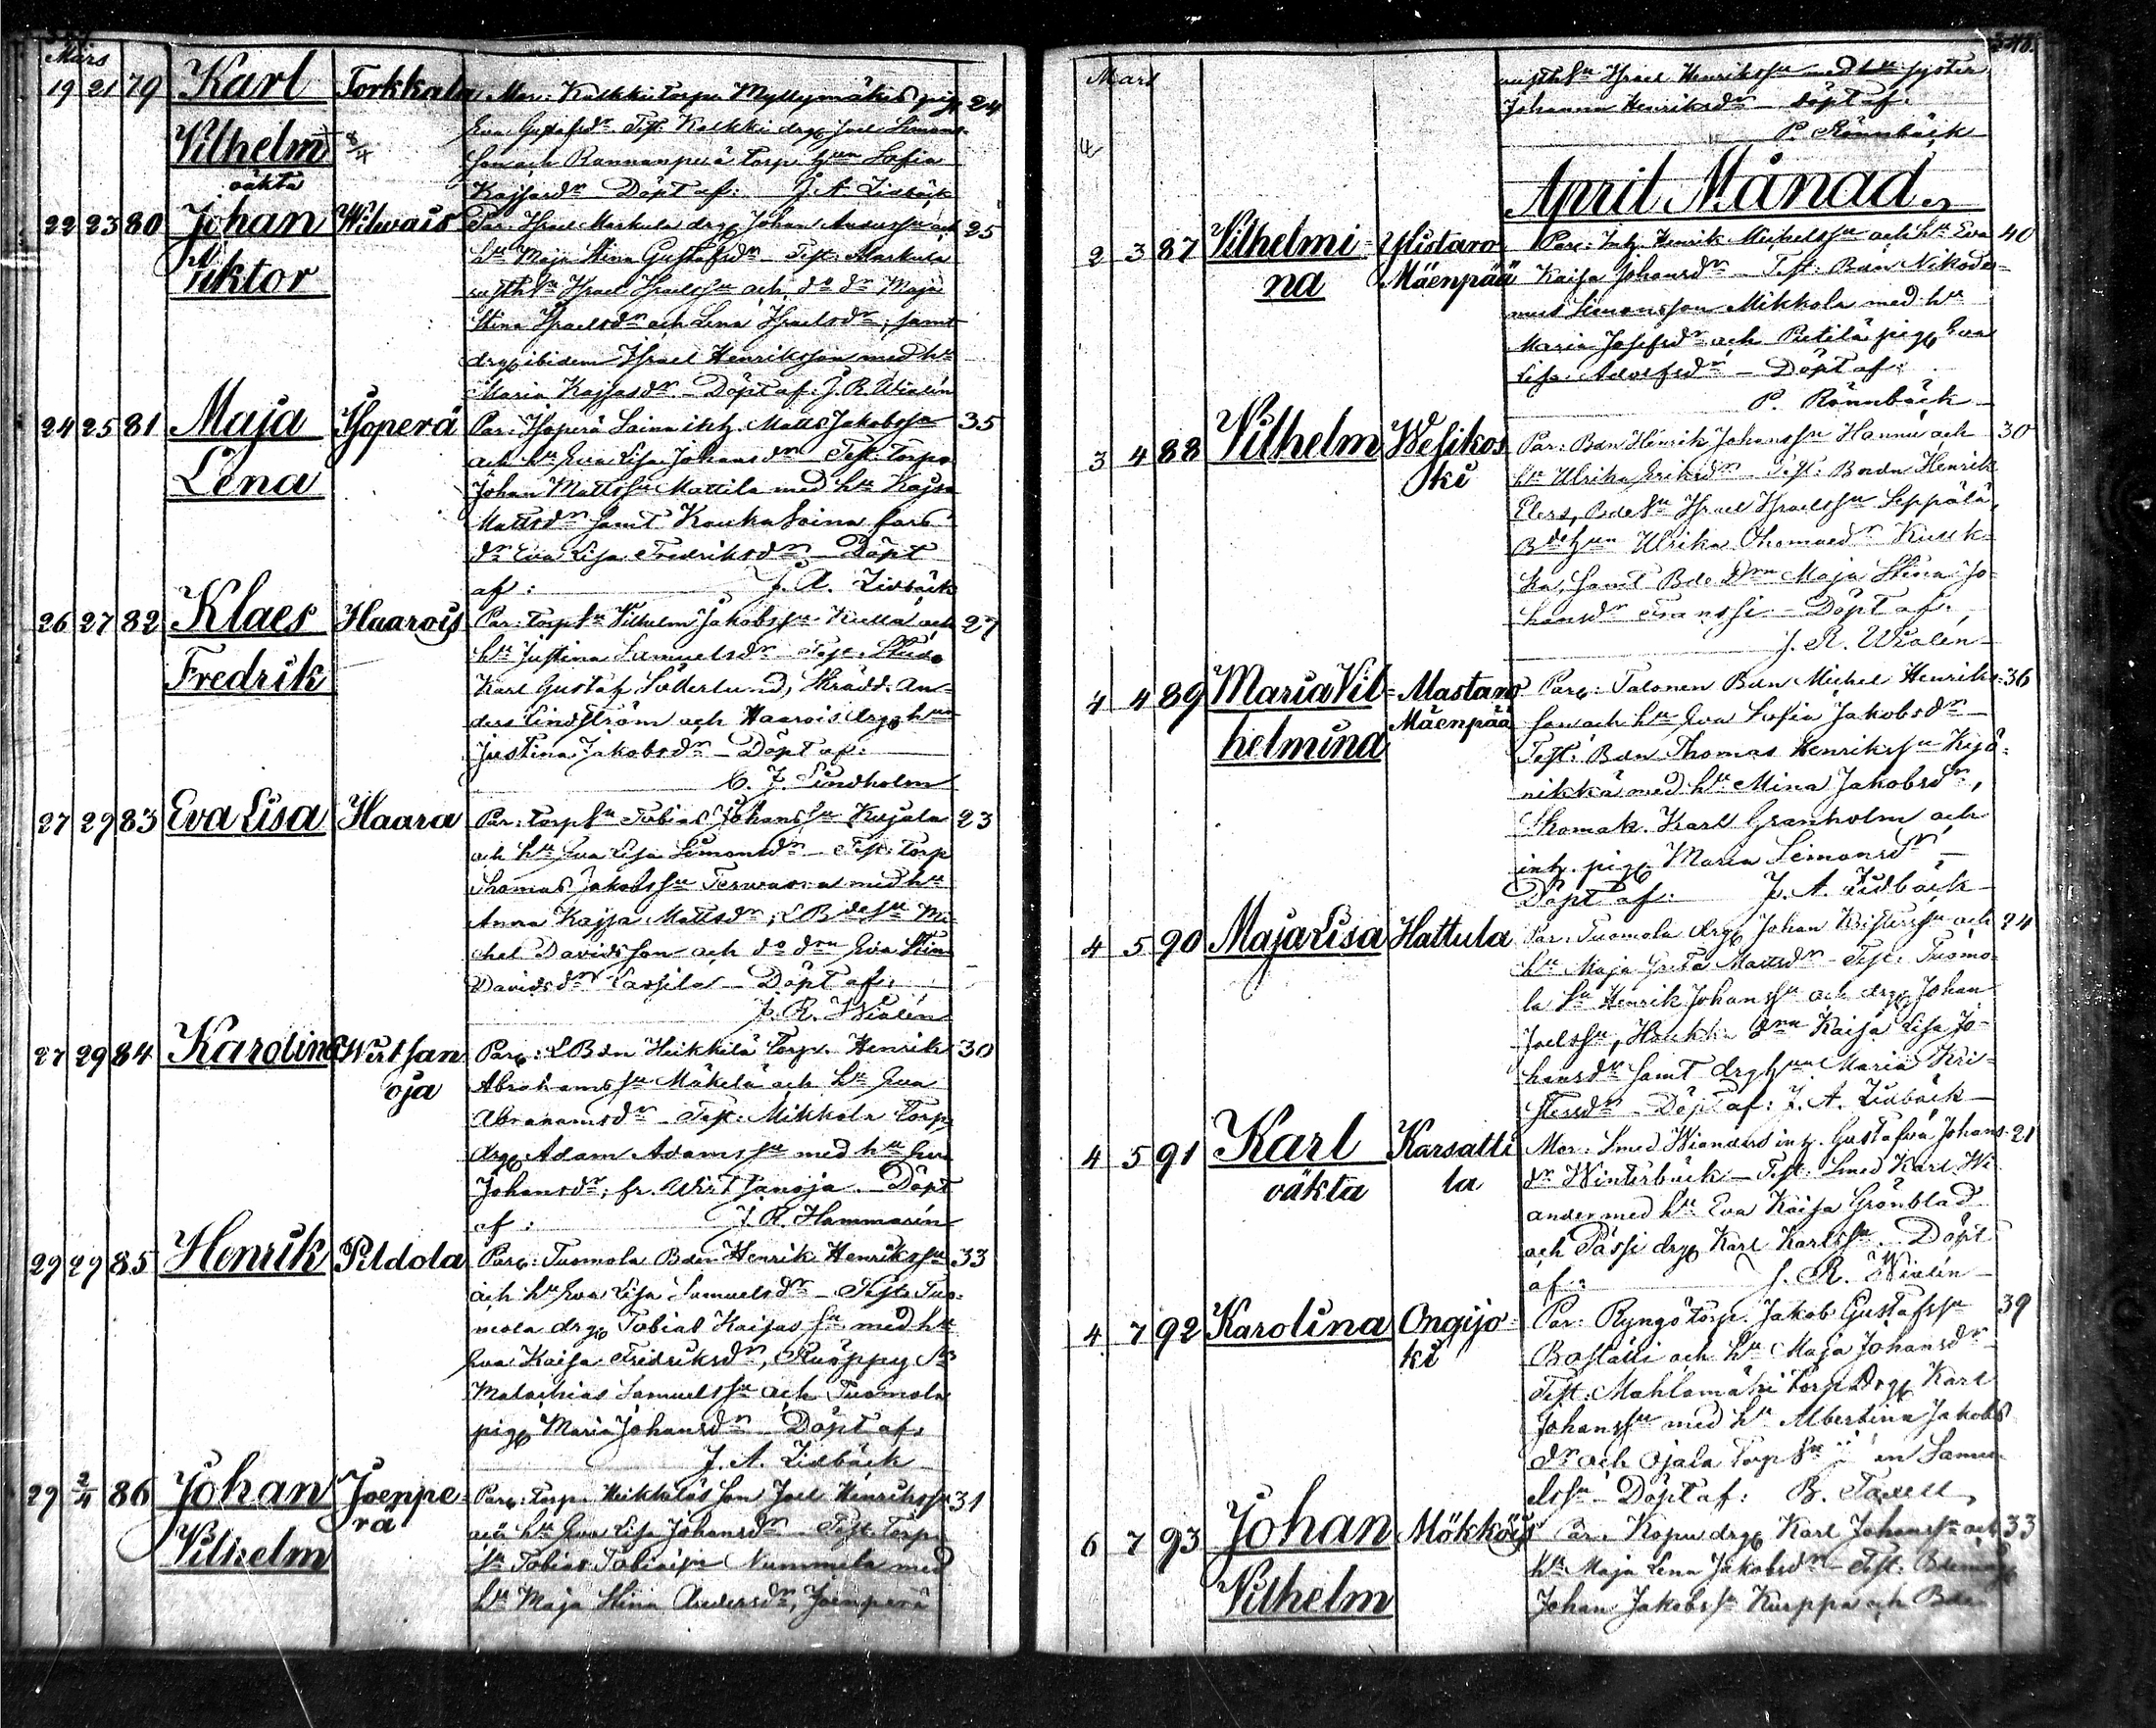 Mars
19 21 79 Karl Torkkala Mor: Kalkki torp. Myllymäkis pig 24
Vilhelm 8/4 Eva Gustafsdr Test. Kalkki drg Joel Simons-
son och Rannanperä torp hun Sofia
oäkta Kajsasdr Döpt af: J. A. Lidbäck
22 23 80 Johan Wilwais Par. Israel Markula drg Johan Anderssn och 25
Viktor hu Maja Stina Gustafsdr Test. Markula
rusthsn Israel Israelssn och do dr Maja
Stina Israelsdr och Lena Israelsdr, samt
drg ibidem Israel Henriksson med hu
Maria Kajsasdr Döpt af: J. R. Wialén
24 25 81 Maja Isoperä Par. Isoperä Laina inh. Matts Jakobssn 35
Lena och hu Eva Lisa Johansdr Test. torp
Johan Mattssn Mattila med hu Kajsa
Mattsdr samt Kauha Loina
dr Eva Lisa Fredriksdr Döpt
af: J. A. Lidbäck
26 27 82 Klaes Haarois Par. torpsn Vilhelm Jakobssn Kulla och 27
Fredrik hu Justina Samuelsdr Test. Stud.
Karl Gustaf Söderlund, Skrädd. An-
ders Lindström och Haarois drg hun
Justina Jakobsdr Döpt af:
C. J. Lindholm
27 29 83 Eva Lisa Haara Par. torpsn Tobias Johanssn Kujala 23
och hu Eva Lisa Simonsdr Test. torp
Thomas Jakobssn Terwasna med hu
Anna Kajsa Mattsdr; L Bdesn Mi-
chel Davidsson och do drn Eva Stin
Davidsdr Lassila Döpt af:
J. R. Wialén
27 29 84 Karolina Wirtsan Par: L Bdn Heikkilä torp. Henrik 30
oja Abrahamssn Mäkelä och hu Eva
Abrahamsdr Test. Mikkola torp
drg Adam Adamssn med hu Eva
Johansdr, fr. Wirtsanoja Döpt
af: J. R. Hammarén
29 29 85 Henrik Peldola Par: Tuomola Bdn Henrik Henrikssn 33
och hu Eva Lisa Samuelsdr Test. Tuo-
mola drg Tobias Kaisas sn med hu
Eva Kaisa Fredriksdr, Ruoppy
Malachias Samuelssn och Tuomola
pig Maria Johansdr Döpt af:
J. A. Lidbäck
29 2/4 86 Johan Joenpe- Par: torp. Heikkiläs son Joel Henrikssn 31
Vilhelm rä och hu Eva Lisa Johansdr Test. torp
sn Tobias Tobiassn Nummela med
hu Maja Stina Andersdr, Joenperä
348.
Mars
rusthsn Israel Henrikssn med hu syster
Johanna Henriksdr döpt af:
P. Rönnbäck
April Månad.
2 3 87 Vilhelmi- Ylistaro Par: Inh. Henrik Michelssn och hu Eva 40
na Mäenpää Kaisa Johansdr Test. Bdn Nikode-
mus Simonsson Mikkola med hu
Maria Josefsdr och Pietilä pig Eva
Lisa Adolfsdr Döpt af:
P. Rönnbäck
3 4 88 Vilhelm Wesikos Par: Bdn Henrik Johanssn Hannu och 30
ki hu Ulrika Eriksdr Test. Bndn Henrik
Elers, Bdesn Israel Israelssn Seppälä,
Bdehun Ulrika Thomasdr Kuuk-
ka, samt Bde Drn Maja Stina Jo-
hansdr Franssi Döpt af:
J. R. Wialén
4 4 89 Maria Vil- Mastaro Par: Talonen Bdn Michel Henriks- 36
helmina Mäenpää son och hu Eva Sofia Jakobsdr
Test. Bdn Thomas Henrikssn Kyö-
nikkä med hu Mina Jakobsdr,
Skomak. Karl Granholm och
inh. pig Maria Simonsdr
Döpt af: J. A. Lidbäck
4 5 90 Maja Lisa Hattula Par. Tuomola drg Johan Kristerssn och 24
hu Maja Greta Mattsdr Test. Tuomo-
la sn Henrik Johanssn och drg Johan
Joelssn, Houkki drn Kaisa Lisa Jo-
hansdr samt drghun Maria Kri-
stersdr Döpt af: J. A. Lidbäck
4 5 91 Karl Karsatti Mor. Smed Wianders inh. Gustafva Johans- 21
oäkta la dr Winterbäck Test. Smed Karl Wi-
ander med hu Eva Kaisa Grönblad
och Passi drg Karl Karlssn. Döpt
af: J. R. Wialén
4 7 92 Karolina Ongijo- Par. Ryngö torp. Jakob Gustafssn 39
ki Bastatti och hu Maja Johansdr
Test. Mahlamäki torp Drg Karl
Johanssn med hu Albertina Jakobs
dr och Ojala torpsn Samu-
elssn Döpt af: B. Taxell
6 7 93 Johan Mökköis Par. Kopu drg Karl Johanssn och 33
Vilhelm hu Maja Lena Jakobsdr Test. Bdemåg
Johan Jakobssn Kurppa och Bde